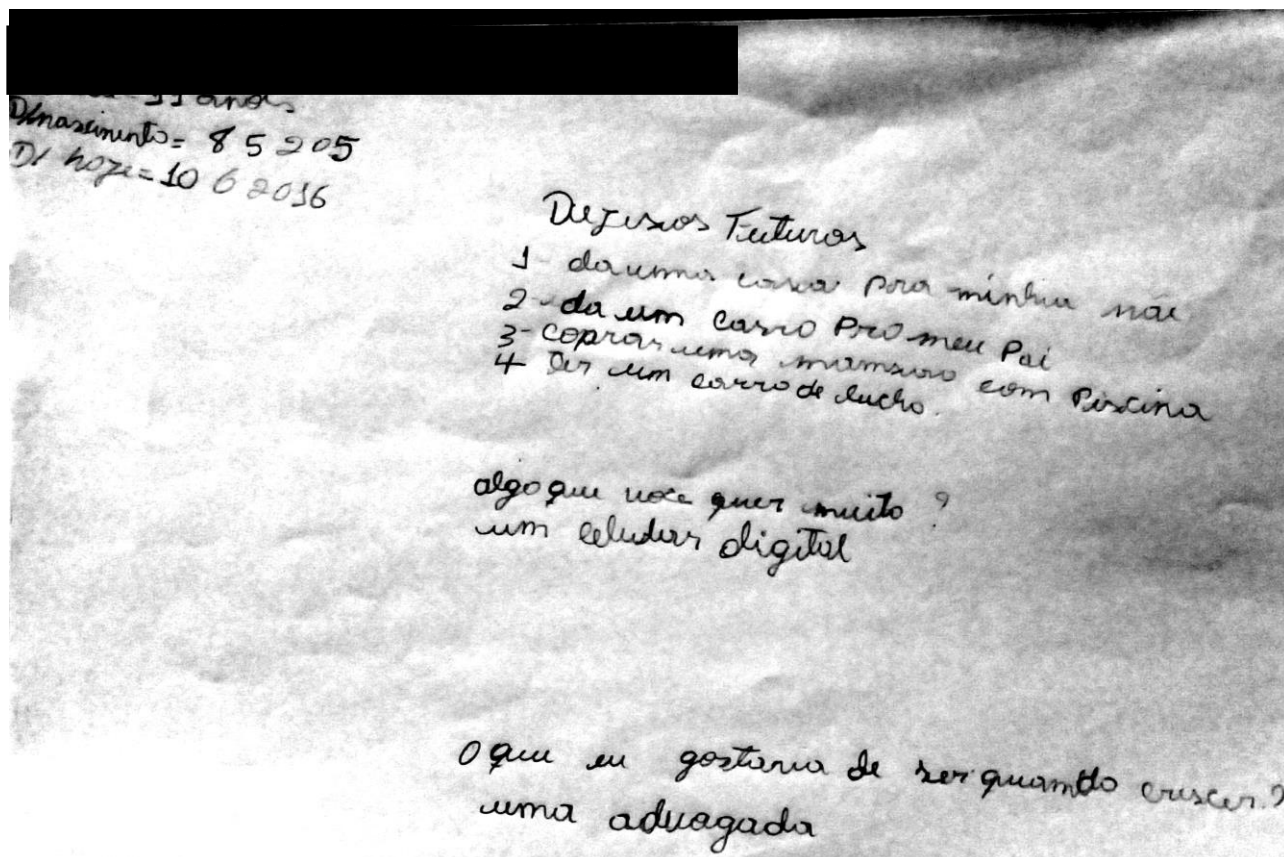 11 anos
D/nascimento= 8 5 205
D/ hoje=10 6 2016
Dezisos Futuros
1- da uma casa pra minha mãe
2- da um carro Pro meu Pai
3- coprar uma mamsão com Piscina
4 Ter um carro de lucho.
algo que voce quer muito ?
um celular digital
O que eu gostaria de ser quamdo crescer?
uma advogada